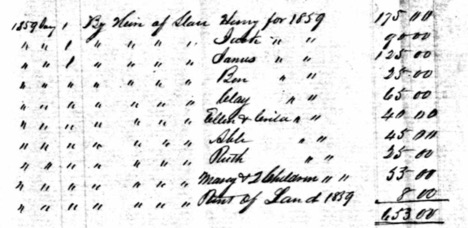 1859 Jany 1 By Hire of Slave Henry for 1859 175 00
" " 1 " " " " Jacob " " 90 00
" " 1 " " " " James " " 125 00
" " " " " " " Ben " " 25 00
" " " " " " " Clay " " 65 00
" " " " " " " Ellen & " " 40 00
" " " " " " " Able " " 45 00
" " " " " " " Ruth " " 25 00
" " " " " " " Mary & 2 Children " " 55 00
" " " " Rent of Land 1859 8 00
653 00